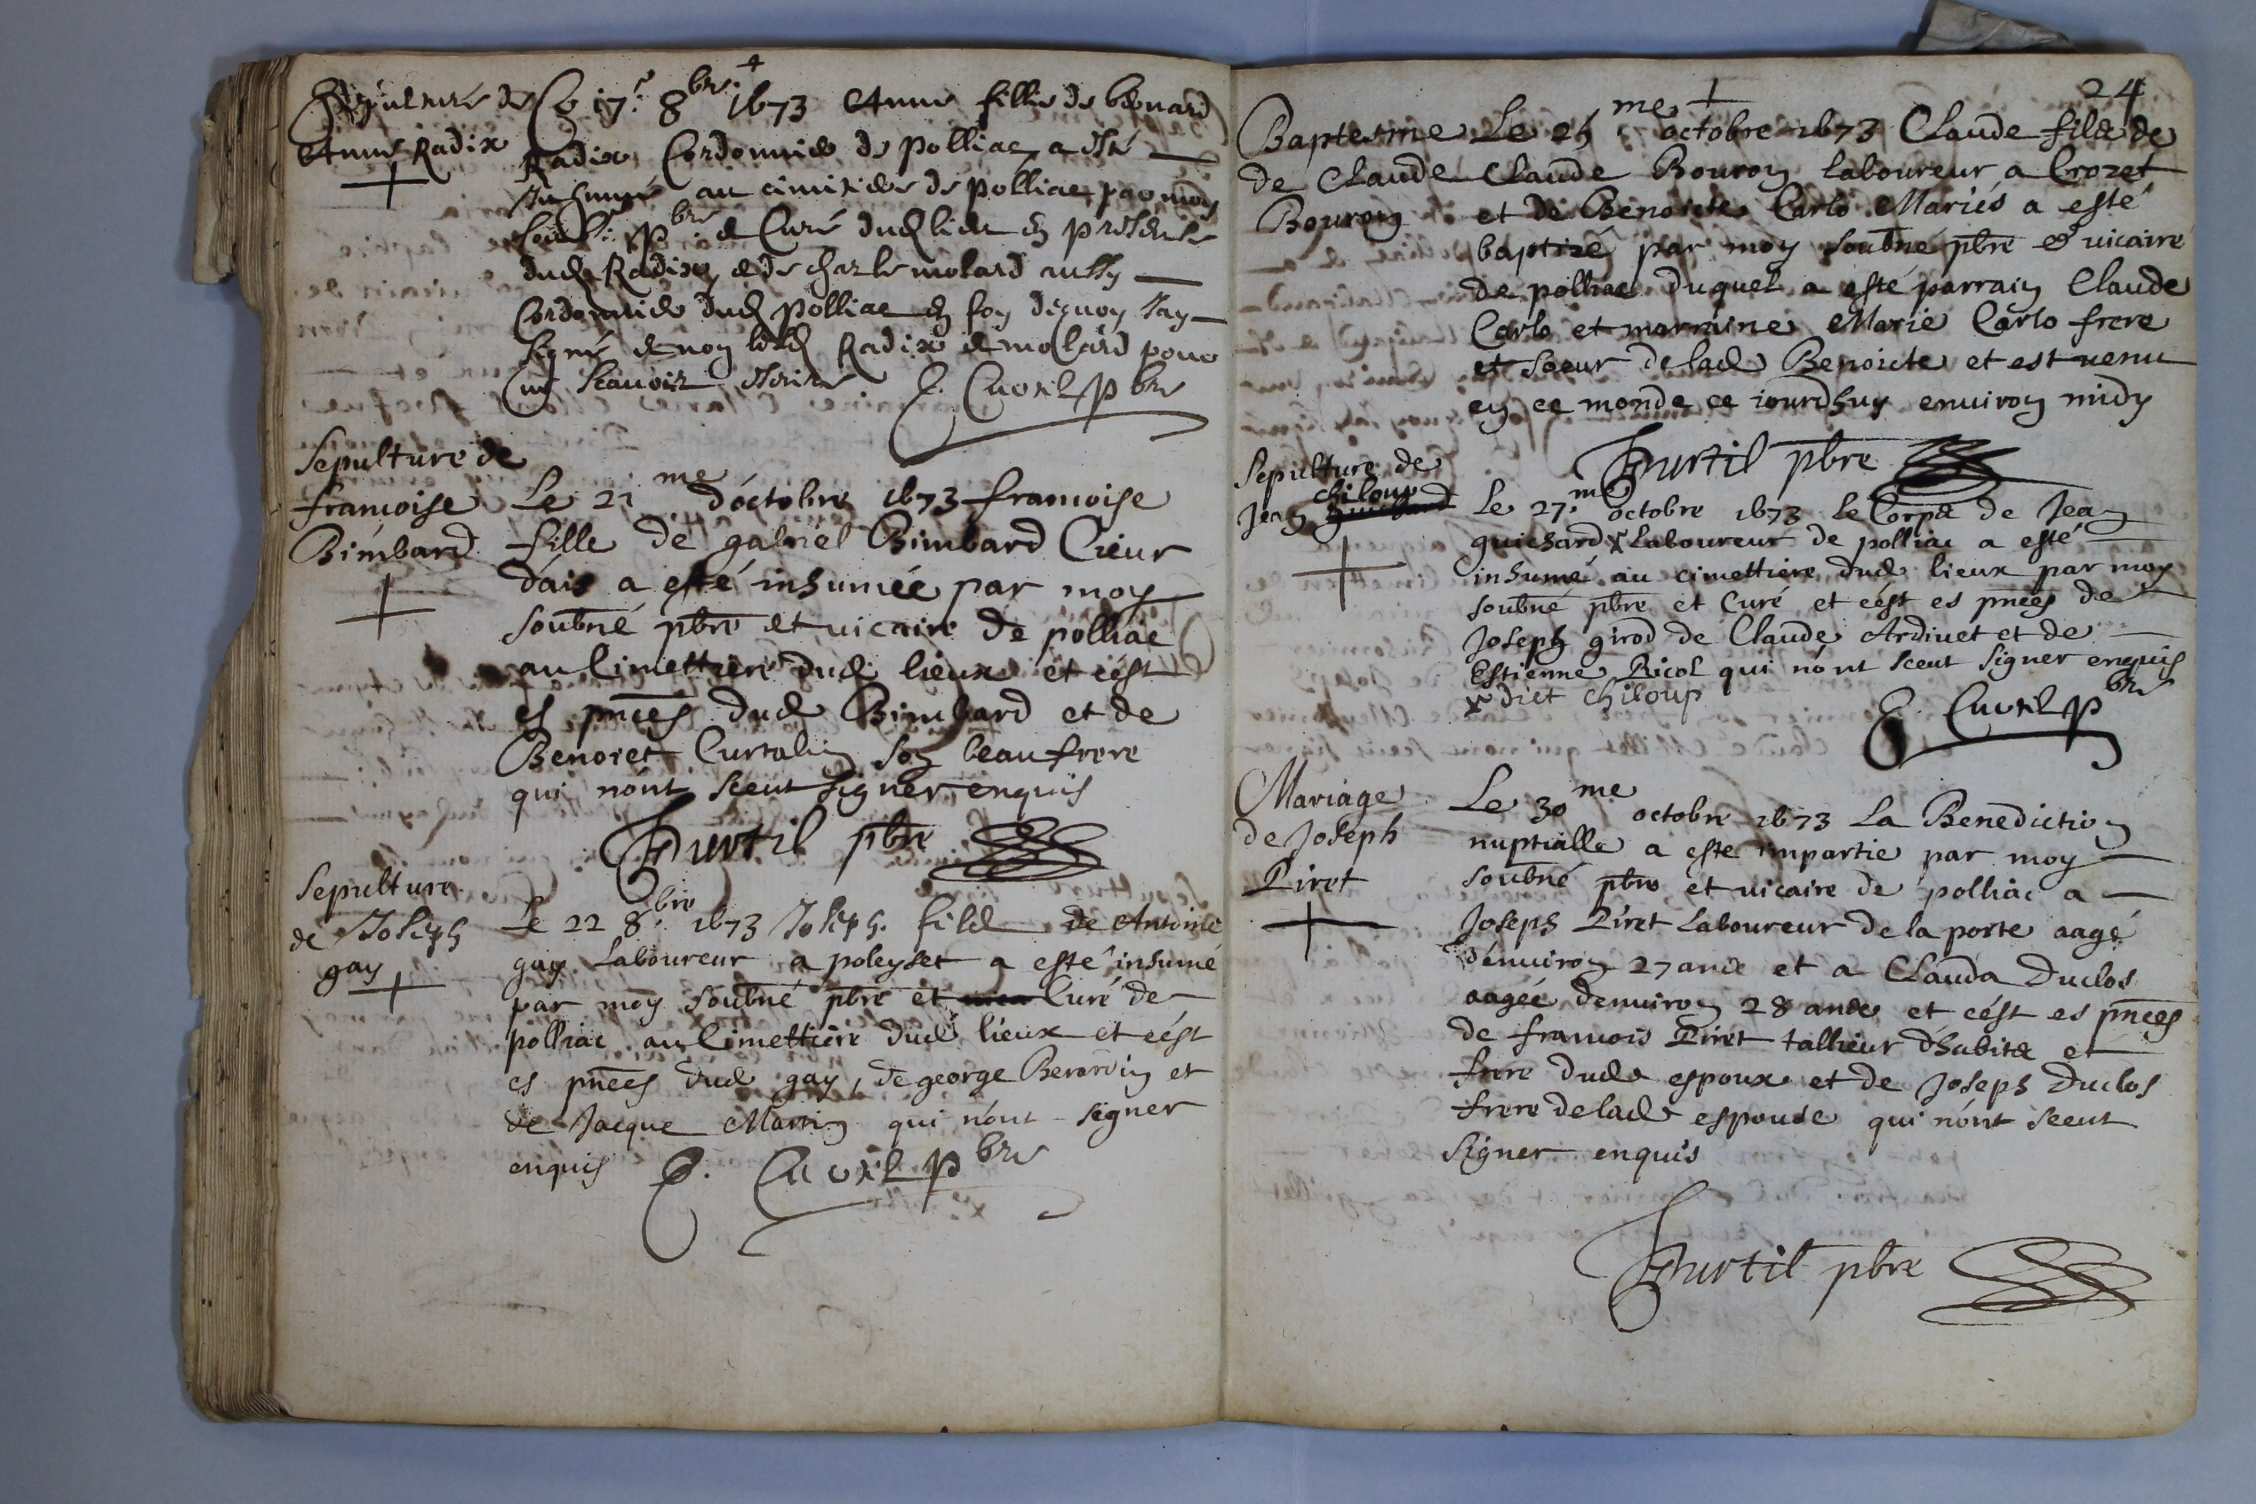 Sepulture de
Anne Radix
Ce 17e 8bre 1673 Anne fillie de benoard
Radix Cordonnier de Polliac a esté
Inhumé au cimitiere de polliac par moy
soub: pbre & Curé dud lieu en presence
dud Radix & de charle molard aussy
Cordonnier dud Polliac en foy dequoy Jay
signé & non lesd Radix & molard pour
ne scauoir escrire E. Cuvtil pbre
Sepulture de
francoise
Bimbard
Le 21me d'octobre 1673 francoise
fille de gabriel Bimbard Cieur
d'ais a esté inhumée par moy
soubné pbre et uicaire de polliac
au Cimettiere dud lieux et c'est
es pnces dud Bimbard et de
Benoict Curtalin son beaufrere
qui n'ont sceut signer enquis
Hurtil pbre
Sepulture
de Joseph
gay
Le 22 8bre 1673 Joseph fils de Antoine
gay Laboureur a poleyset a esté inhumé
par moy soubné pbre et Curé de
polliac au Cimettiere dud lieux et c'est
es pnces dud gay, de george Berardin et
de Jacque Martin qui n'ont signer
enquis E. Cuvtil pbre
24
Baptesme
de Claude
Bouron
Le 25me octobre 1673 Claude fils de
Claude Bouron laboureur a Crozet
et de Benoicte Carlo Mariés a esté
baptizé par moy soubné pbre & uicaire
de polliac duquel a esté parrain Claude
Carlo et marraine Marie Carlo frere
et soeur de lade Benoicte et est uenu
en ce monde ce iourdhuy enuiron midy
Hurtil pbre
Sepulture de
chiloup
Jean guichard
Le 27me octobre 1673 le Corps de Jean
guichard x Laboureur de polliac a esté
inhumé au cimettiere dud lieux par moy
soubné pbre et Curé et c'est es pnces de
Joseph girod de Claude Ardiuet et de
Estienne Ricol qui n'ont sceut signer enquis
x dict chiloup
E. Cuvtil pbre
Mariage
de Joseph
Piret
Le 30me octobre 1673 La Benediction
nuptialle a este impartie par moy
soubné pbre et uicaire de polliac a
Joseph Piret Laboureur de la porte aagé
d'enuiron 27 ans et a Clauda Duclos
aagée denuiron 28 ans et c'est es pnces
de francois Piret tallieur d'habits et
frere dud espoux et de Joseph Duclos
frere de lade espouse qui n'ont sceut
signer enquis
Hurtil pbre